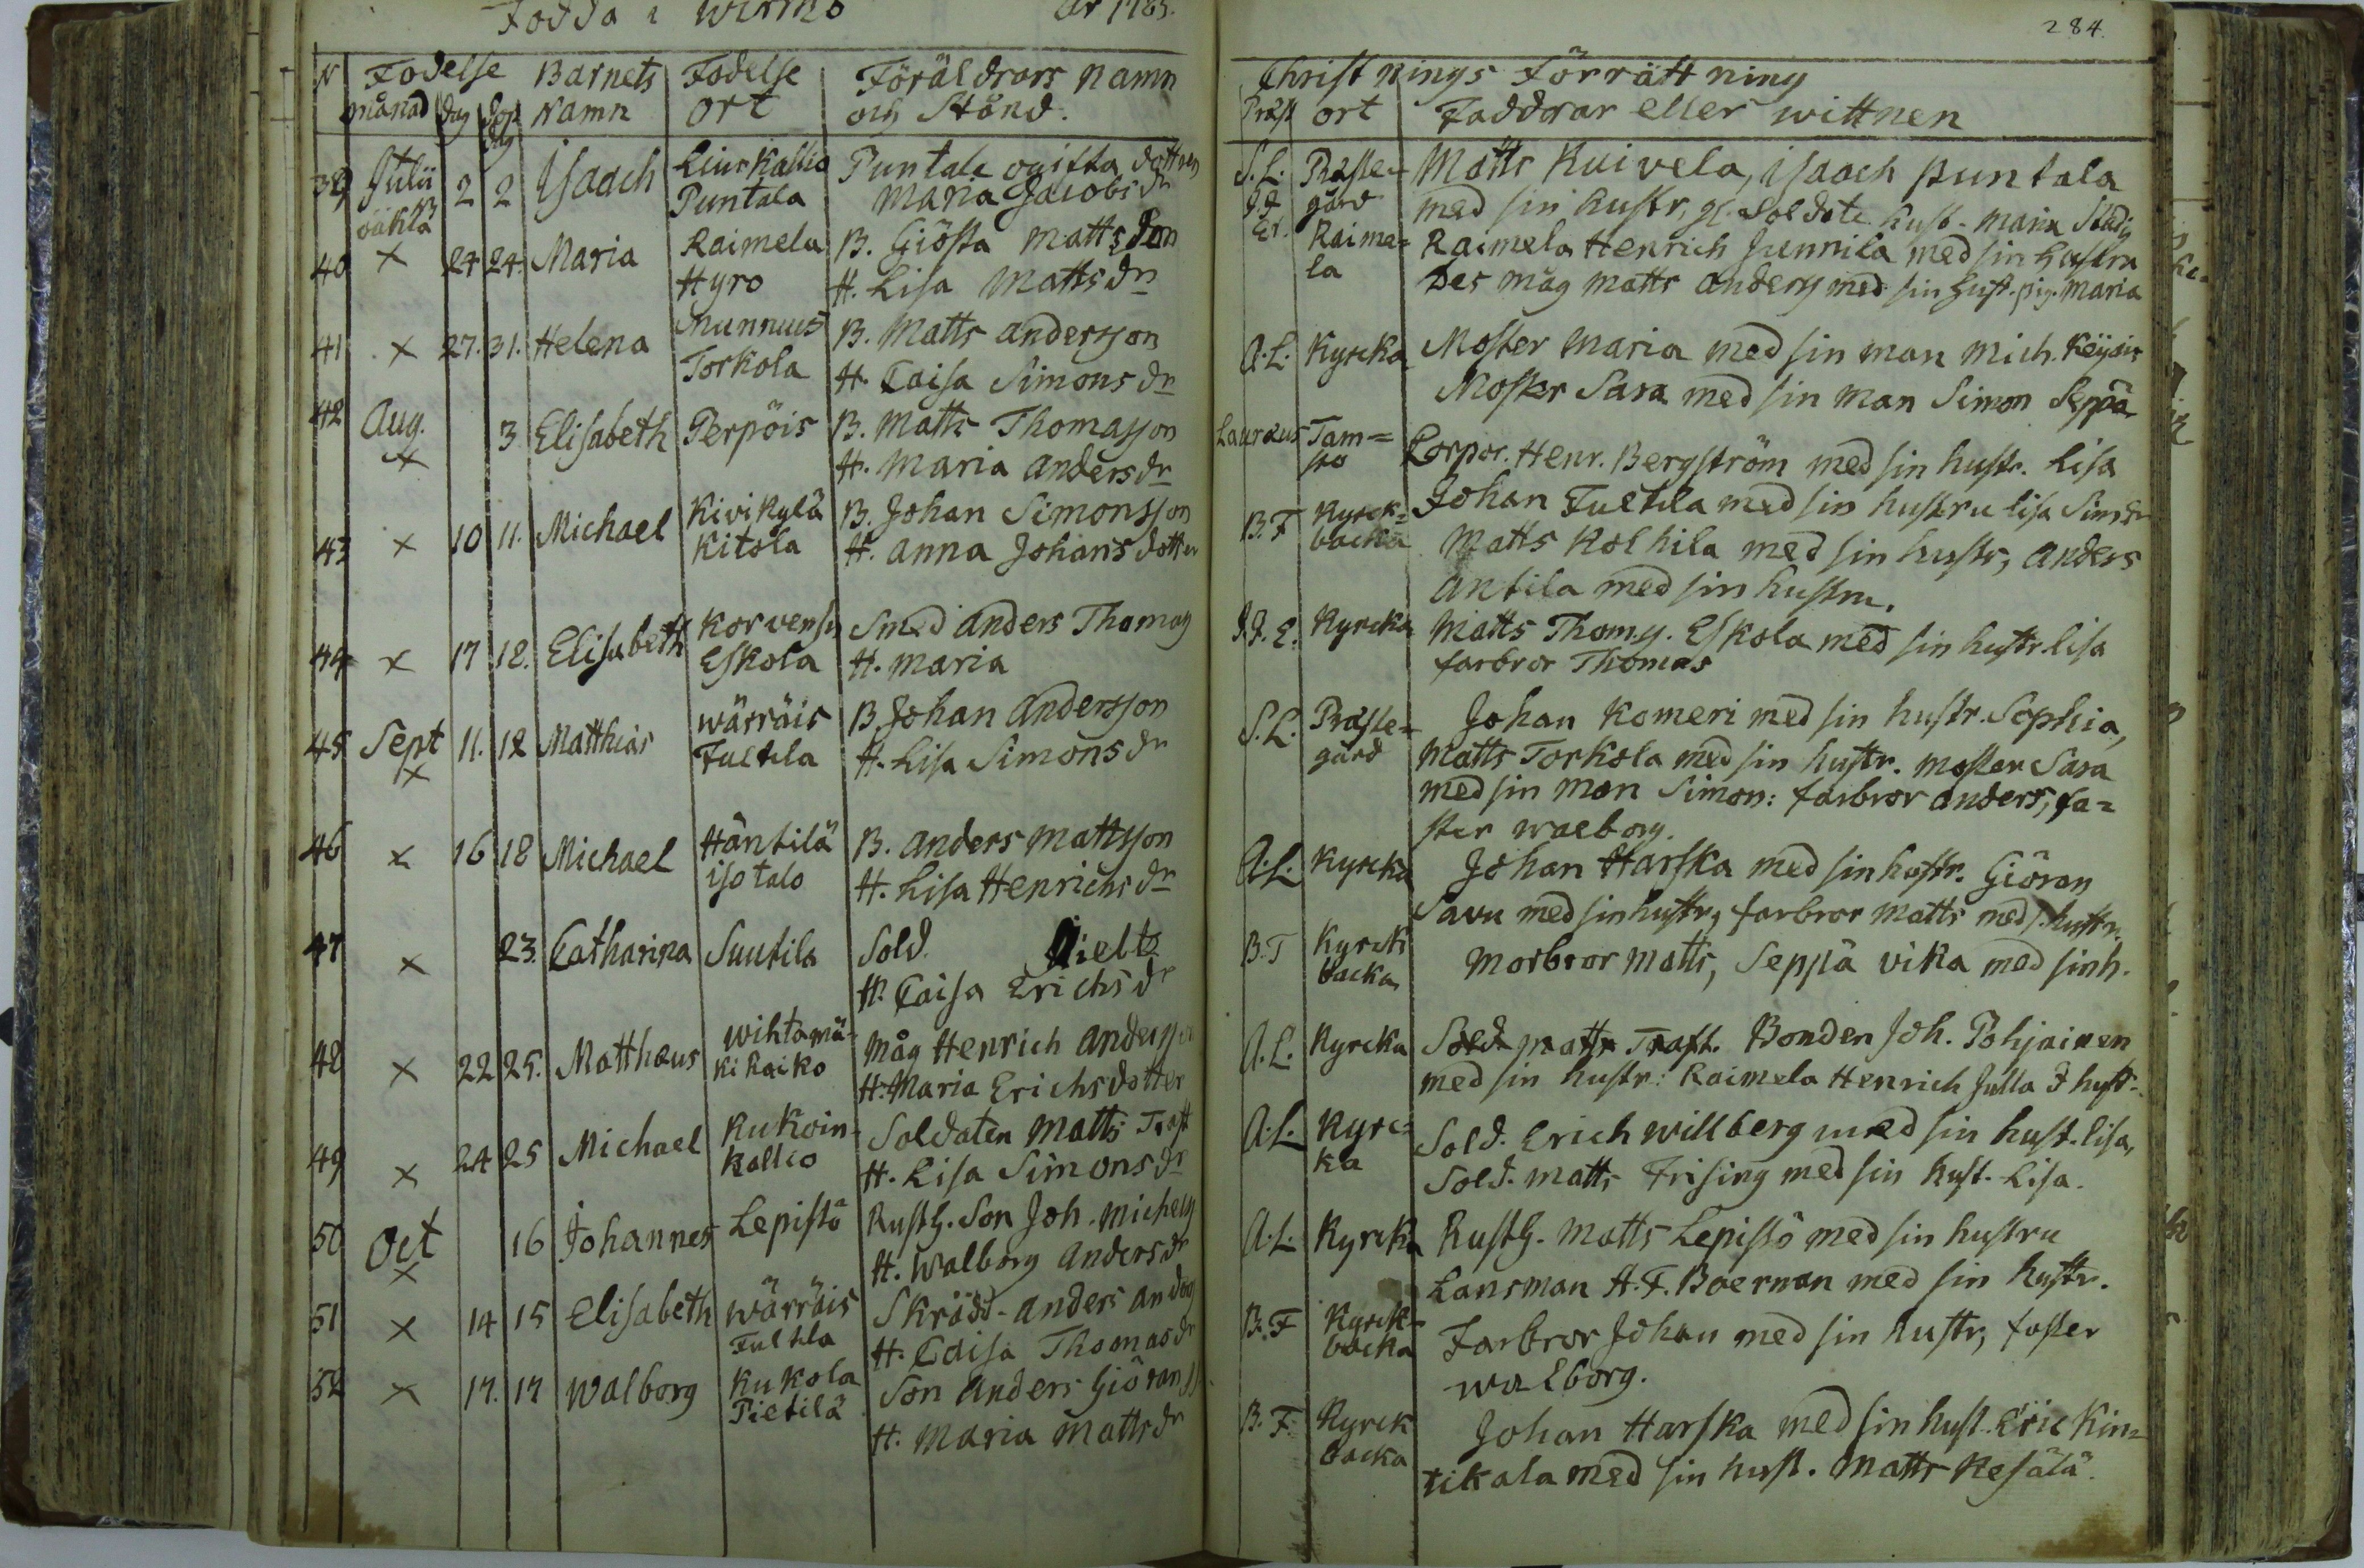 Födda i Wirmo År 1785.
N Födelse Barnets Födelse Föräldrars namn
månad dag döp dag Namn ort och Stånd.
39 Julii 2 2 Isaach Liuskallio Puntala ogifta dottren
oäkta Puntala Maria Jacobs dr
40 x 24 24. Maria Raimela B. Giösta Mattsson
Hyro H. Lisa Matts dr
41 x 27. 31. Helena Munnuis B. Matts Andersson
Torkola H. Caisa Simons dr
42 Aug. 3 Elisabeth Perpöis B. Matts Thomasson
x H. Maria Anders dr
43 x 10 11. Michael Kivikylä B. Johan Simonsson
Kitola H. Anna Johans dotter
44 x 17 18. Elisabeth Korvens Smed Anders Thomas
Eskola H. Maria
45 Sept 11. 12 Matthias Wärräis B Johan Andersson
x Fultila H. Lisa Simons dr
46 x 16 18 Michael Häntilä B. Anders Mattsson
iso talo H. Lisa Henrichs dr
47 x 23. Catharina Suutila Sold.
H. Caisa Erichs dr
48 x 22 25. Matthæus Wihtamä- Måg Henrich Andersson
ki Raiko H. Maria Erichs dotter
49 x 24 25 Michael Kukoin- Soldaten Matts Trast
kallio H. Lisa Simons dr
50 Oct 16 Johannes Lepistö Rusth. Son Joh. Michels
x H. Walborg Anders dr
51 x 14 15 Elisabeth Wärräis Skrädd. Anders
Fultila H. Caisa Thomas dr
52 x 17. 17 Walborg Kukola Son Anders Giörans
Pietilä H. Maria Matts dr
284.
Christnings Förrättning
Präst ort Faddrar eller wittnen
S.L. Präste- Matts Kuivela, Isaach Puntala
gård med sin hustr, gl. Soldate hust. Maria
Raime- Raimela Henrich Junnila med sin hustru
la Des måg Matts Anders med sin hust. pig. Maria
A.L. Kyrcka Moster Maria med sin man Mich.
Moster Sara med sin man Simon Seppä
Lauræus Tam- Corpor. Henr. Bergström med sin hustr. Lisa
sto
B.F Kyrck- Johan Fultila med sin hustru Lisa Sims dr
backa Matts Kolhila med sin hustr, Anders
Antila med sin hustru.
J.J.E. Kyrcka Matts Thoms. Eskola med sin hustr. Lisa
farbror Thomas
S.L. Präste- Johan Komeri med sin hustr. Sophia,
gård Matts Torkola med sin hustr. moster Sara
med sin man Simon: farbror Anders, fa-
ster Walborg.
A.L. Kyrcka Johan Harska med sin hustr. Giöran
Savu med sin hustr, farbror Matts med s. hustr.
B.F Kyrck Morbror Matts, Seppä vika med sin h.
backa
A.L. Kyrcka Sold. Matts Trast. Bonden Joh. Pohjainen
med sin hustr: Raimela Henrich Julla
A.L. Kyrc- Sold. Erich Willberg med sin hust. Lisa,
ka Sold. Matts Frising med sin hust. Lisa.
A.L. Kyrcka Rusth. Matts Lepistö med sin hustru
Lansman H. F. Boerman med sin hustr.
B.F Kyrck- Farbror Johan med sin hustr, faster
backa Walborg.
B.F. Kyrck Johan Harska med sin hust. Eric Kin-
backa tikala med sin hust. Matts Kesälä.